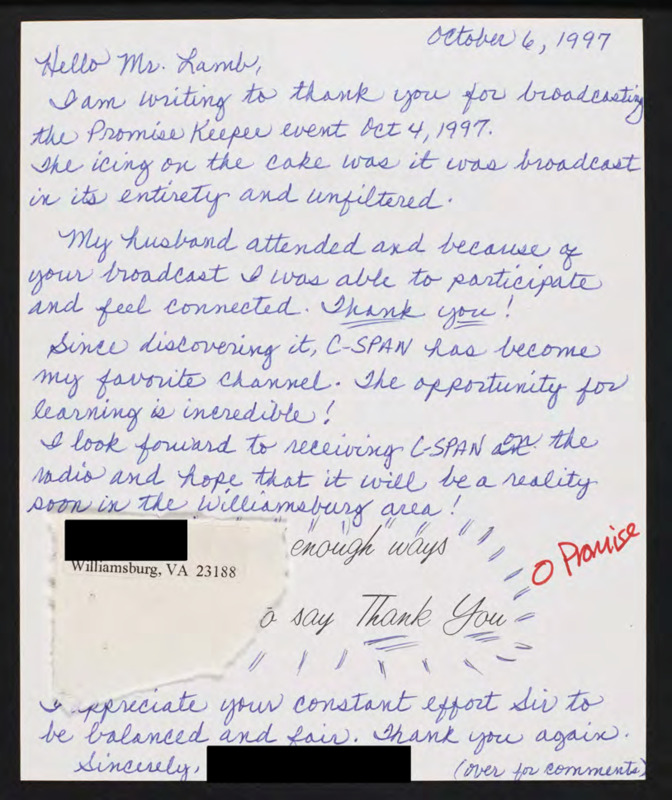 October 6, 1997
Hello Mr. Lamb,
I am writing to thank you for broadcasting
the Promise Keeper event Oct 4, 1997.
The icing on the cake was it was broadcast
in its entirety and unfiltered.
My husband attended and because of
your broadcast I was able to participate
and feel connected. Thank you!
Since discovering it, C-SPAN has become
my favorite channel. The opportunity for
learning is incredible!
I look forward to receiving C-SPAN on the
radio and hope that it will be a reality
soon in the Williamsburg area!
enough ways
Williamsburg, VA 23188
O Promise
o say Thank You
I appreciate your constant effort Sir to
be balanced and fair. Thank you again.
Sincerely,
(over for comments)